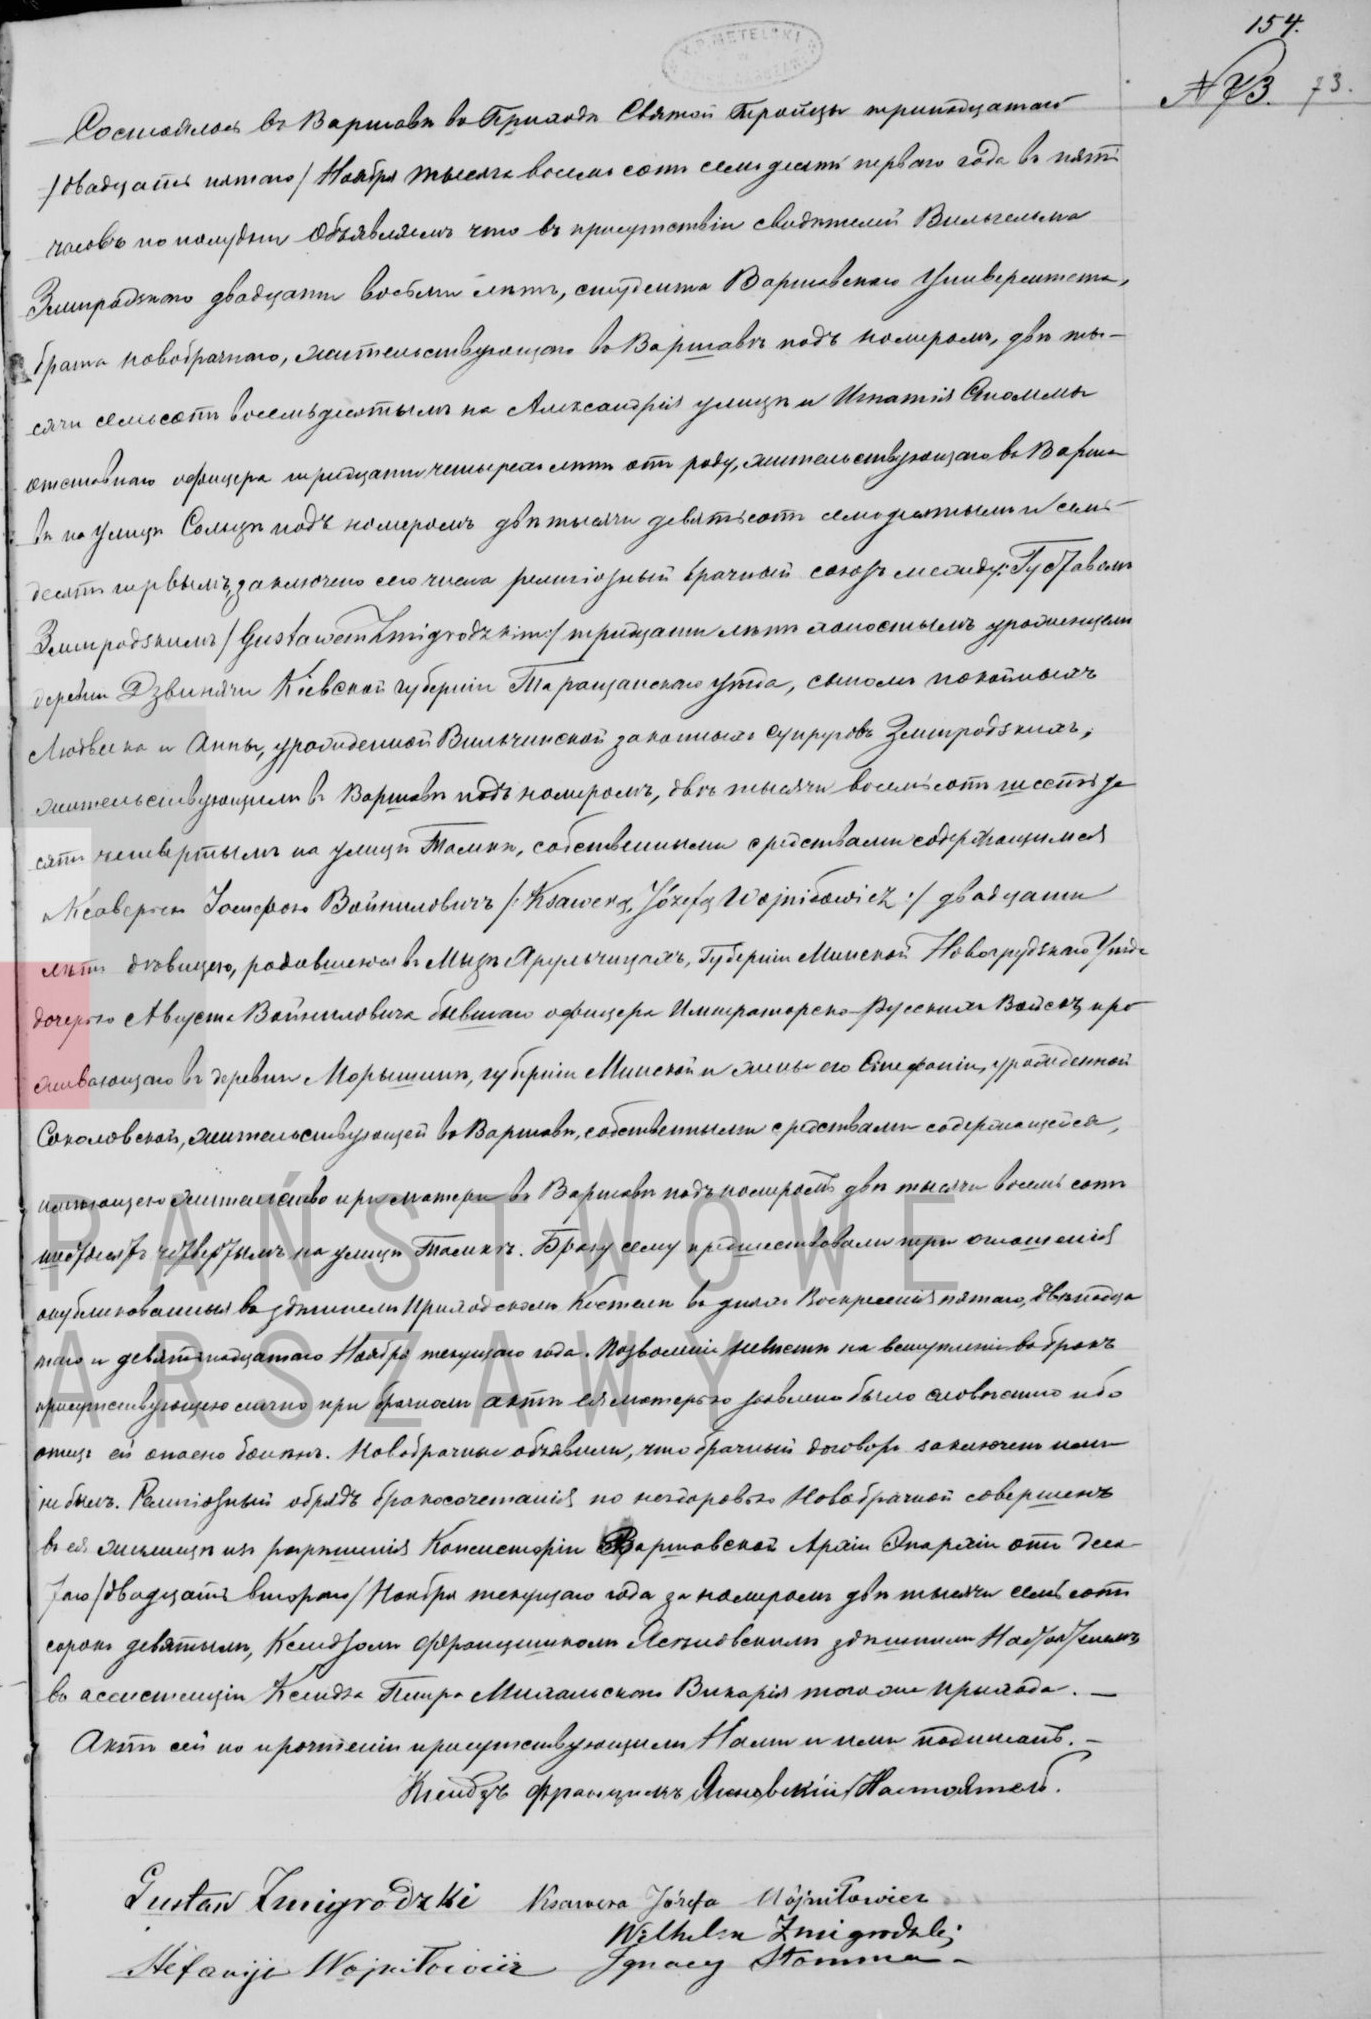 154.
№ 73. 73.
Состоялось въ Варшавѣ въ Приходѣ Святой Тройцы тринадцатаго
/двадцать пятаго/ Ноября тысяча восемь сотъ семьдесятъ перваго года въ пять
часовъ по полудни Объявляемъ что въ присутствіи свидѣтелей Вильгельма
Змигродзкаго двадцати восьми лѣтъ, студента Варшавскаго Университета,
брата новобрачнаго, жительствующаго въ Варшавѣ подъ номеромъ, двѣ ты-
сячи семьсотъ восемьдесятымъ на Александрія улицѣ и Игнатія Стоммы
отставнаго офицера тридцати четырехъ лѣтъ отъ роду, жительствующаго въ Варша
вѣ на улицѣ Сольцѣ подъ номеромъ двѣ тысячи девятьсотъ семьдесятымъ и семь-
десятъ первымъ, заключенъ сего числа религіозный брачный союзъ между: Густавомъ
Змигродзкимъ /Gustawem Zmigrodzkim:/ тридцати лѣтъ холостымъ уроженцемъ
деревни Дзвинячи Кіевской губерніи Таращанскаго уѣзда, сыномъ покойныхъ
Людвика и Анны, урожденной Вильчинской законныхъ супруговъ Змигродзкихъ,
жительствующимъ въ Варшавѣ подъ номеромъ, двѣ тысячи восемьсотъ шестьде
сятъ четвертымъ на улицѣ Тамкѣ, собственными средствами содержащимся
и Ксаверією Іосифою Войниловичъ /:Ksawerą Józefą Wojniłowicz:/ двадцати
лѣтъ дѣвицею, родившеюся въ Мызѣ Ярульчицахъ, Губерніи Минской Новогрудзкаго Уѣзда
дочерью Августа Войниловича бывшаго офицера Императорско-Русскихъ Войскъ, про
живающаго въ деревни Морышинѣ, губерніи Минской и жены его Стефаніи, урожденной
Соколовской, жительствующей въ Варшавѣ, собственными средствами содержащейся,
имѣющею жительство при матери въ Варшавѣ подъ номеромъ двѣ тысячи восемь сотъ
шестьдесятъ четвертымъ на улицѣ Тамкѣ. Браку сему предшествовали три оглашенія
опубликованныя въ здѣшнемъ Приходскомъ Костелѣ въ дняхъ Воскресенія пятаго, двѣнадца
таго и девятнадцатаго Ноября текущаго года. Позволеніе невѣстѣ на вступленіе въ бракъ
присутствующею лично при брачномъ актѣ ея матерью заявлено было словесно ибо
отецъ ей опасно боленъ. Новобрачные объявили, что брачный договоръ заключенъ ими
не былъ. Религіозный обрядъ бракосочетанія по нездоровью Новобрачной совершенъ
въ ея жилищѣ изъ разрѣшенія Консисторіи Варшавской Архи Епархіи отъ деся-
таго /двадцать втораго/ Ноября текущаго года за номеромъ двѣ тысячи семь сотъ
сорокъ девятымъ, Ксендзомъ Францишкомъ Ясіновскимъ здѣшнимъ Настоятелемъ
въ ассистенціи Ксендза Петра Михальскаго Викарія того же прихода. —
Актъ сей по прочтеніи присутствующимъ Нами и ими подписанъ. —
Ксендзъ Францишекъ Ясіновскій Настоятель.
Gustaw Zmigrodzki Ksawera Józefa Wójniłowicz
Wilhelm Zmigrodzki
Stefanija Wojniłowicz Ignacy Stomma
PAŃSTWOWE
ARSZAWY